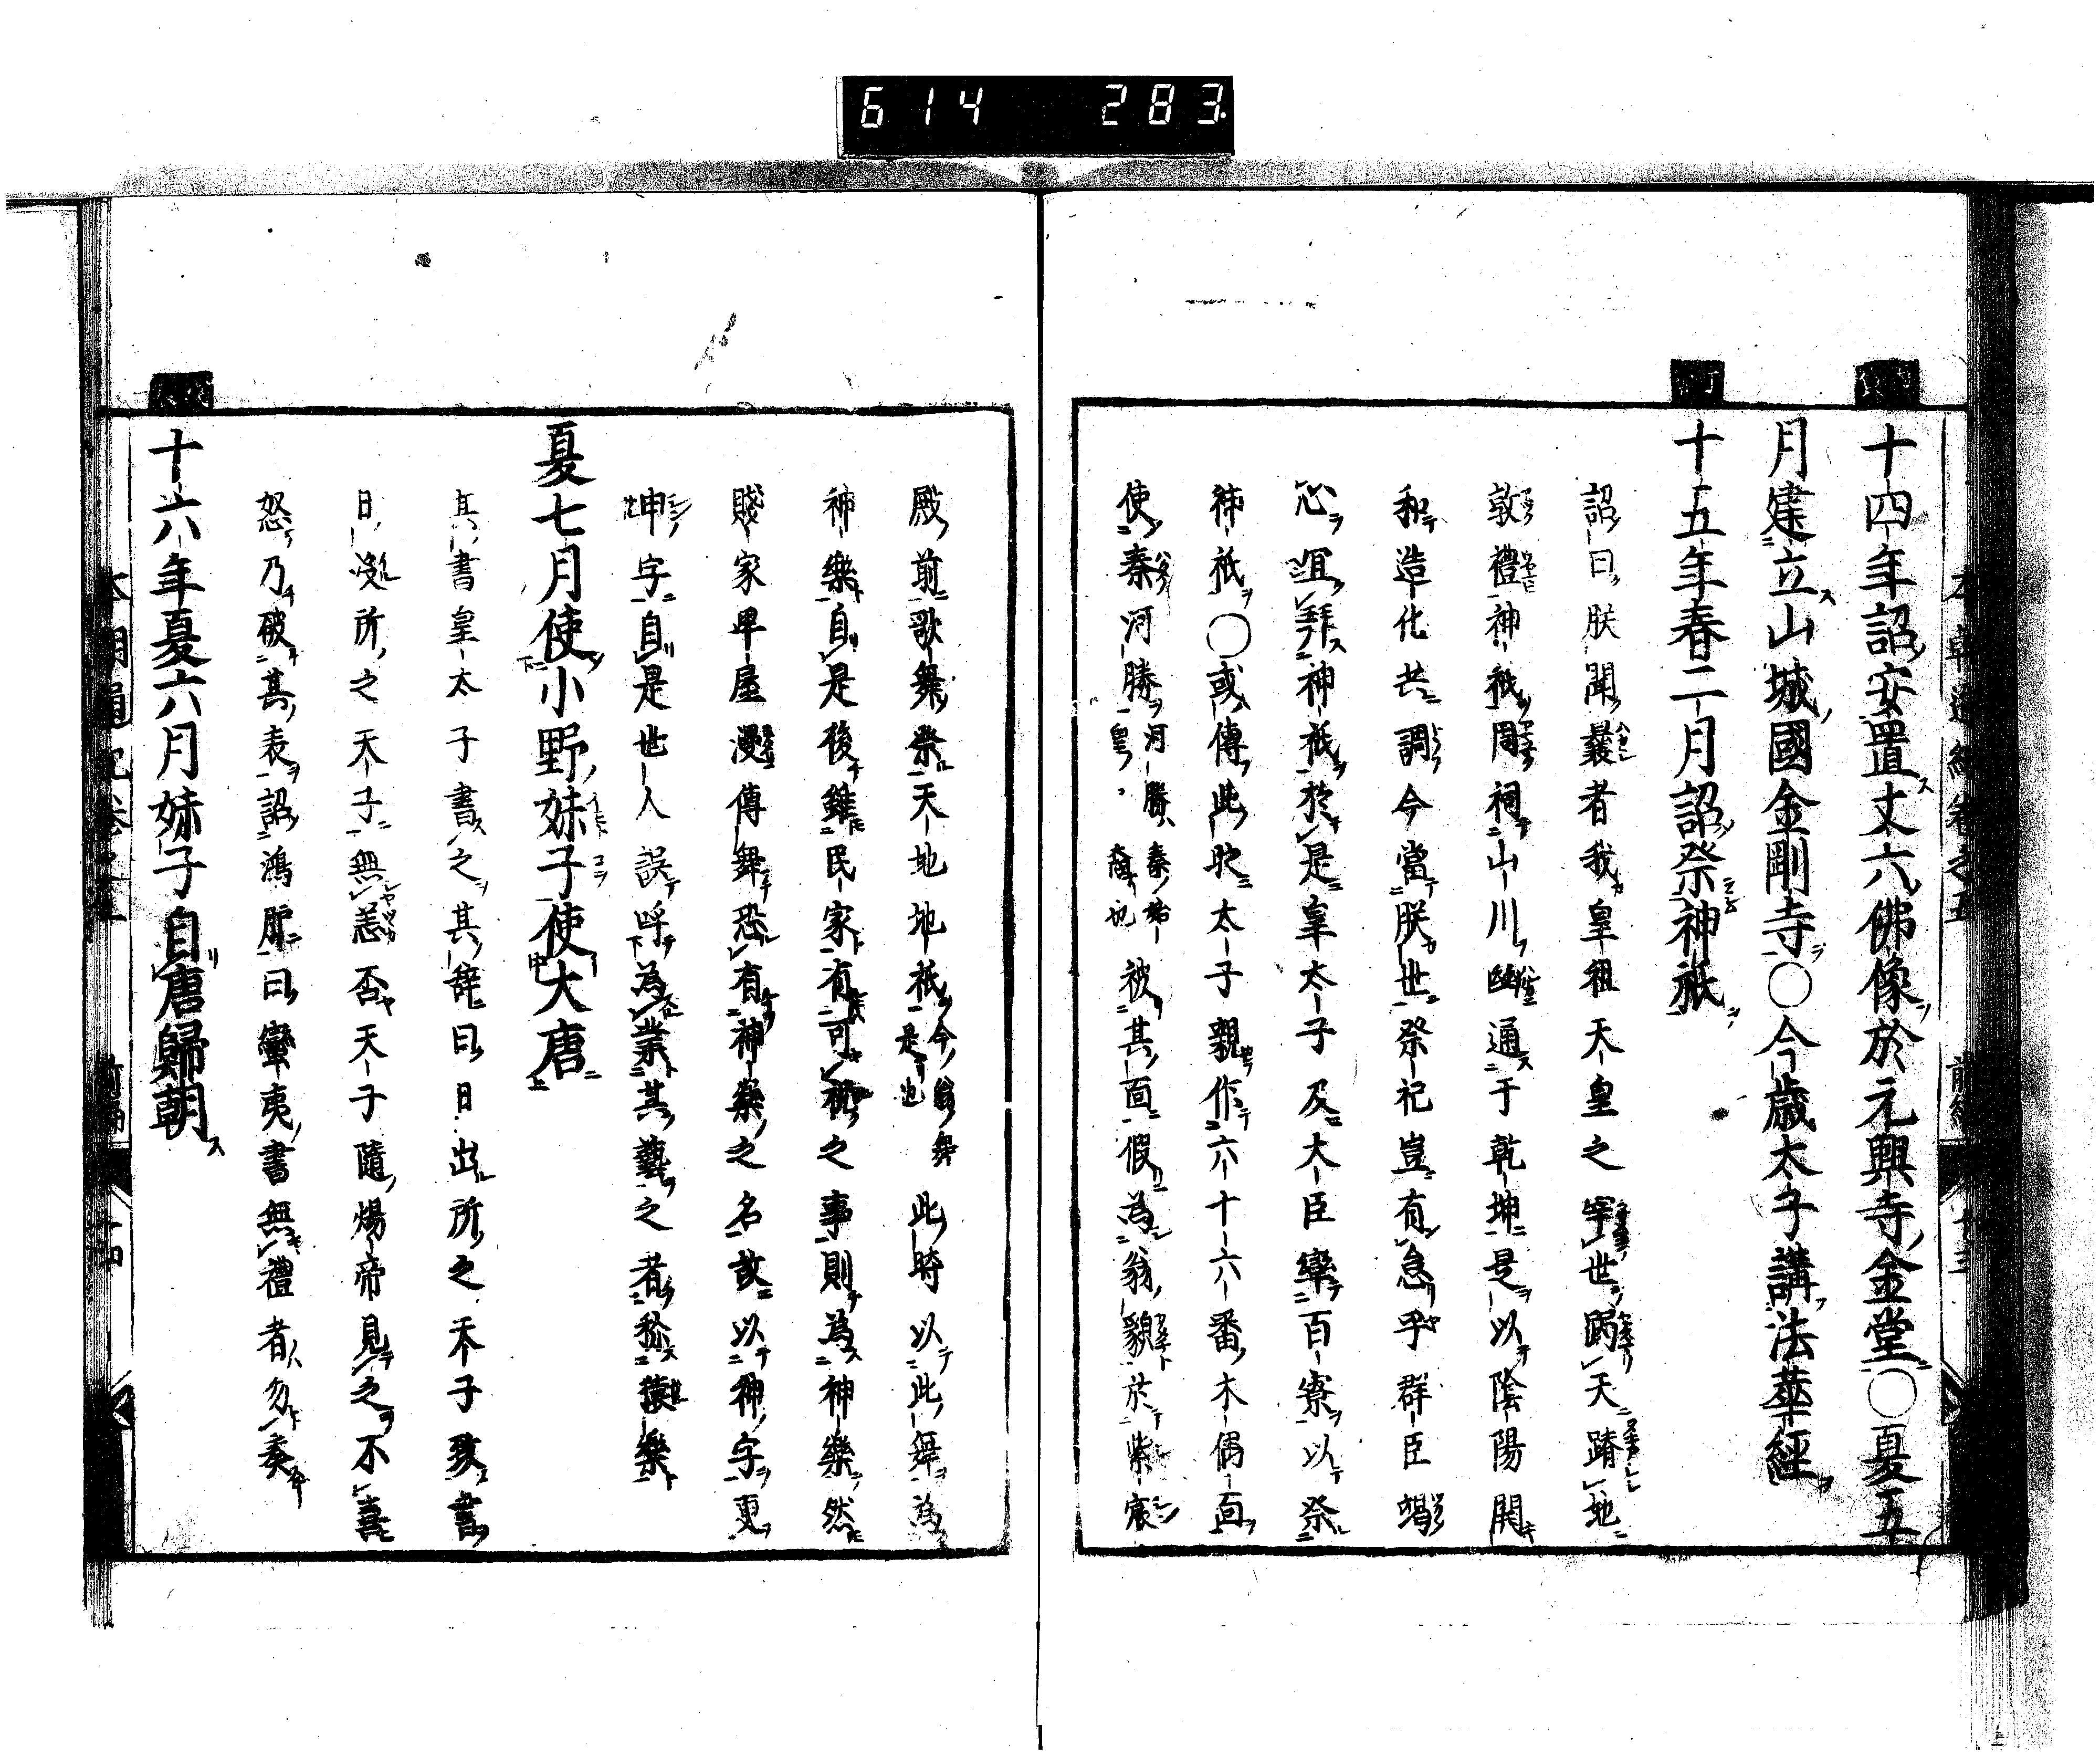 614 283
本朝通紀卷之五 前編 十三
十四年詔安置丈六佛像於元興寺金堂〇夏五
月建立山城國金剛寺〇今歳太子講法華經
十五年春二月詔祭神祇
詔曰朕聞曩者我皇祖天皇之宰世跼天蹐地
敦禮神祇周祠山川幽通于乾坤是以陰陽開
和造化共調今當朕世祭祀豈有怠乎群臣竭
心宜拜神祇於是皇太子及大臣率百寮以祭
神祇〇或傳此時太子親作六十六番木偶面
使秦河勝河勝秦始皇裔也被其面假為翁貌於紫宸
殿前歌舞祭天地地祇今翁舞是也此時以此舞為
神樂自是後雖民家有可祝之事則為神樂然
賤家卑屋漫傳舞恐有神樂之名故以神字更
申字自是世人誤呼為業其藝之者称猿樂
夏七月使小野妹子使大唐
其書皇太子書之其辞曰日出所之天子致書
日没所之天子無恙否天子隨煬帝見之不喜
怒乃破其表詔鴻臚曰蠻夷書無禮者勿奏
十六年夏六月妹子自唐歸朝
本朝通紀卷之五 前編 十四